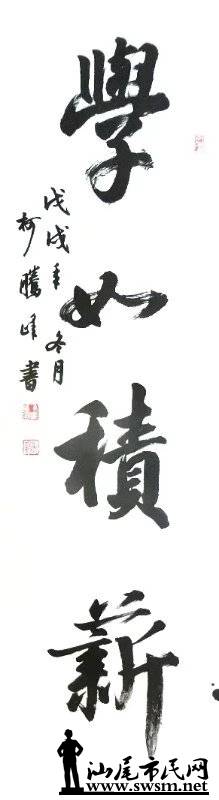 學如積薪
戊戌年冬月
柯騰峰書
汕尾市民网
www.swsm.net